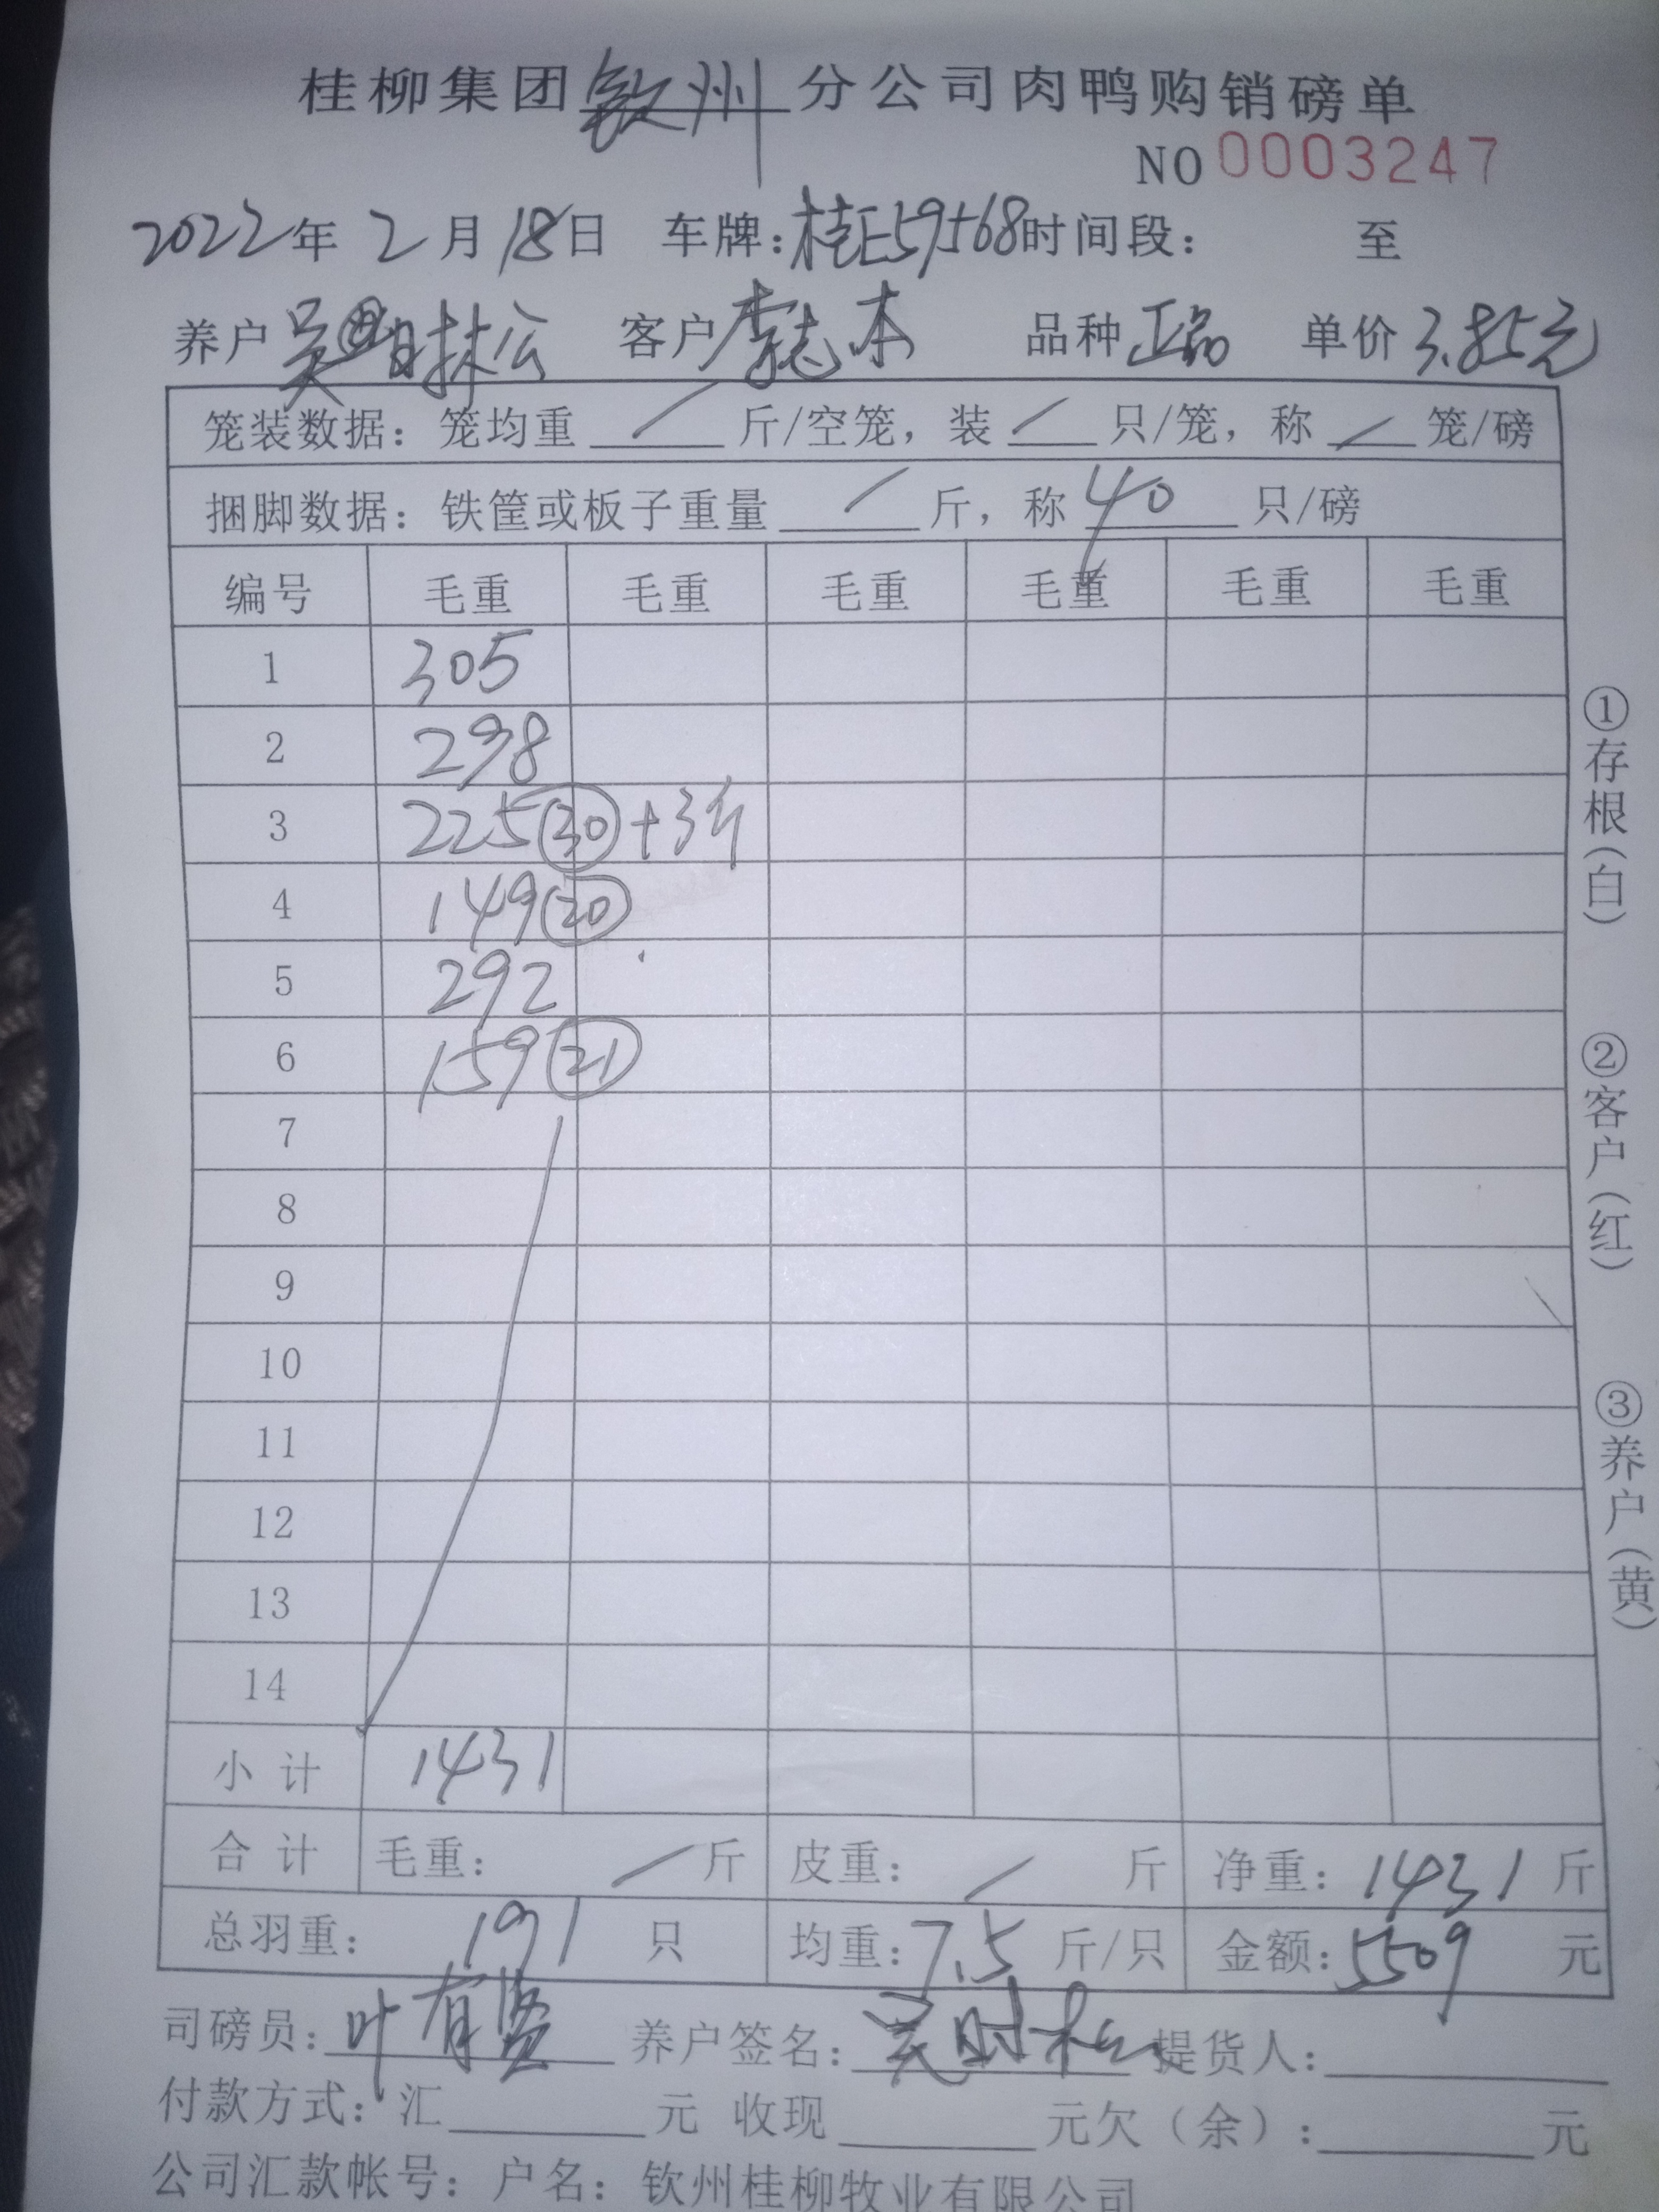 桂柳集团钦州分公司肉鸭购销磅单
NO 0003247
2022年2月18日 车牌:桂E59568时间段: 至
养户吴时松 客户李志本 品种正品 单价3.85元
笼装数据: 笼均重 / 斤/空笼, 装 / 只/笼, 称 / 笼/磅
捆脚数据: 铁筐或板子重量 / 斤, 称 40 只/磅
编号 毛重 毛重 毛重 毛重 毛重 毛重
1 305
2 298
3 225 30 +3斤
4 149 20
5 292
6 159 21
7
8
9
10
11
12
13
14
小计 1431
合计 毛重: / 斤 皮重: / 斤 净重: 1431 斤
总羽重: 191 只 均重: 7.5 斤/只 金额: 5509 元
司磅员: 叶有 养户签名: 吴时松 提货人:
付款方式: 汇 元 收现 元欠(余): 元
公司汇款帐号: 户名: 钦州桂柳牧业有限公司
①存根(白)
②客户(红)
③养户(黄)